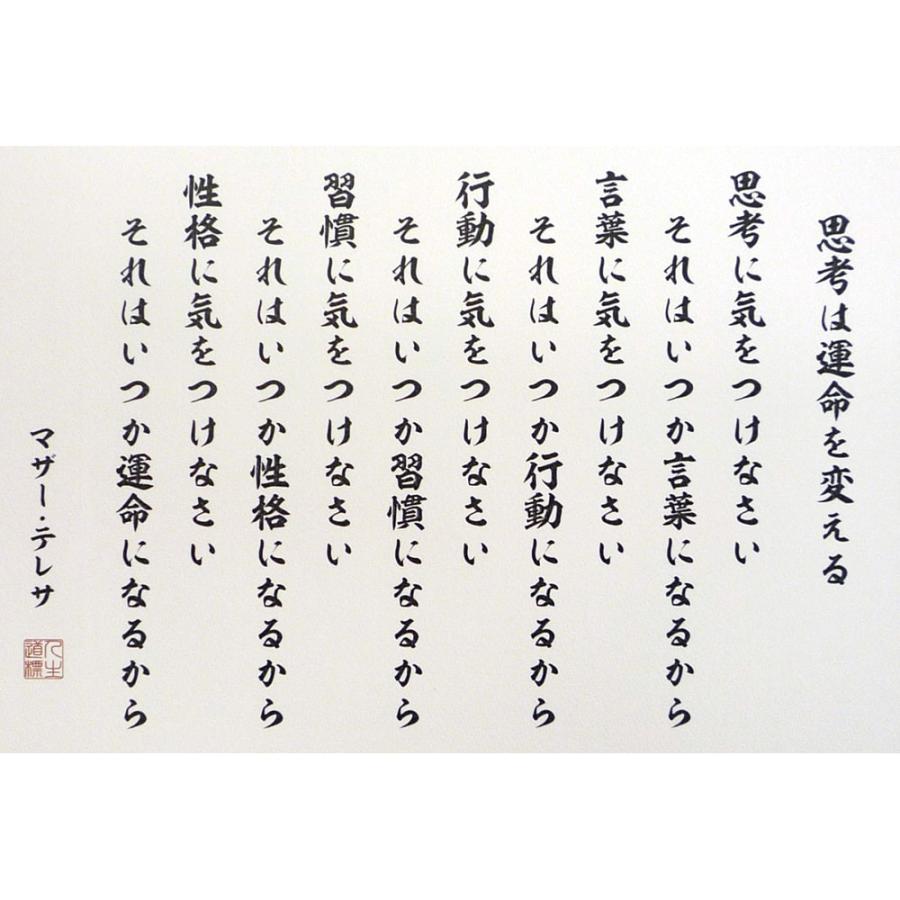 思考は運命を変える
思考に気をつけなさい
それはいつか言葉になるから
言葉に気をつけなさい
それはいつか行動になるから
行動に気をつけなさい
それはいつか習慣になるから
習慣に気をつけなさい
それはいつか性格になるから
性格に気をつけなさい
それはいつか運命になるから
マザー・テレサ
人生
道標